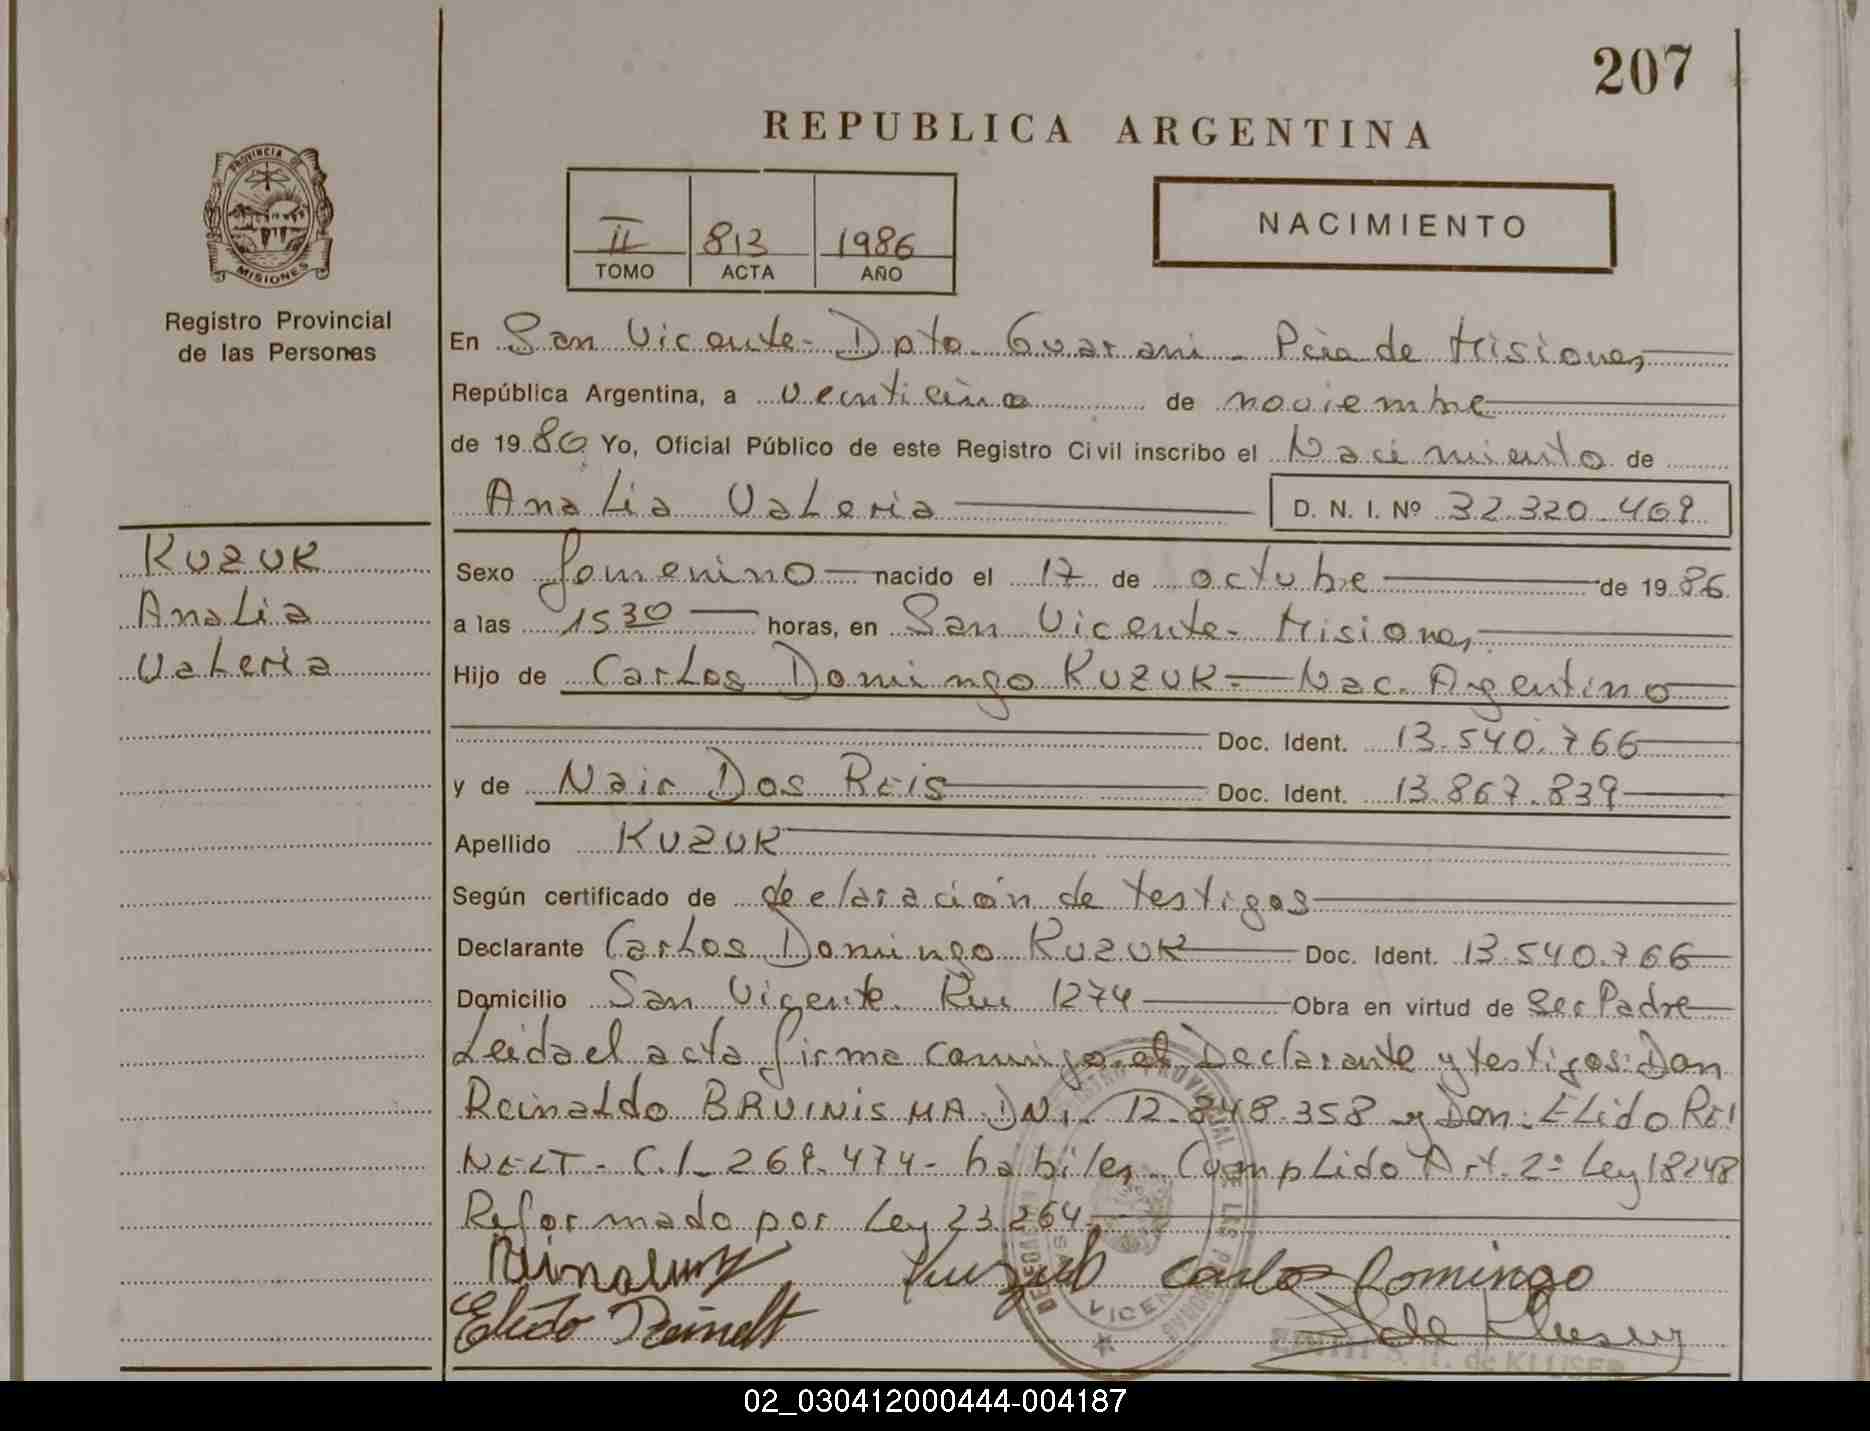 207
REPUBLICA ARGENTINA
PROVINCIA DE
MISIONES
Registro Provincial
de las Personas
II 813 1986
TOMO ACTA AÑO
NACIMIENTO
En San Vicente - Dpto. Guarani - Pcia de Misiones
República Argentina, a veinticinco de noviembre
de 19 86 Yo, Oficial Público de este Registro Civil inscribo el Nacimiento de
Analia Valeria D. N. I. Nº 32.320.469
KUZUK
Analia
Valeria
Sexo femenino nacido el 17 de octubre de 19 86
a las 15 30 horas, en San Vicente - Misiones
Hijo de Carlos Domingo KUZUK - Nac. Argentino
Doc. Ident. 13.540.766
y de Nair Dos Reis Doc. Ident. 13.867.839
Apellido KUZUK
Según certificado de declaración de testigos
Declarante Carlos Domingo KUZUK Doc. Ident. 13.540.766
Domicilio San Vicente. 1274 Obra en virtud de Ser Padre
Leida el acta firma conmigo el Declarante y testigos: Don
Reinaldo BRUINISMA DNI. 12.848.358 y Don: ELido REI
NELT - C.I. 269.474 - habiles - Cumplido Art. 2º Ley 18248
Reformado por Ley 23.264
Kuzuk Carlos Domingo
Elido Reinelt
de KLUSER
VICEN
02_030412000444-004187